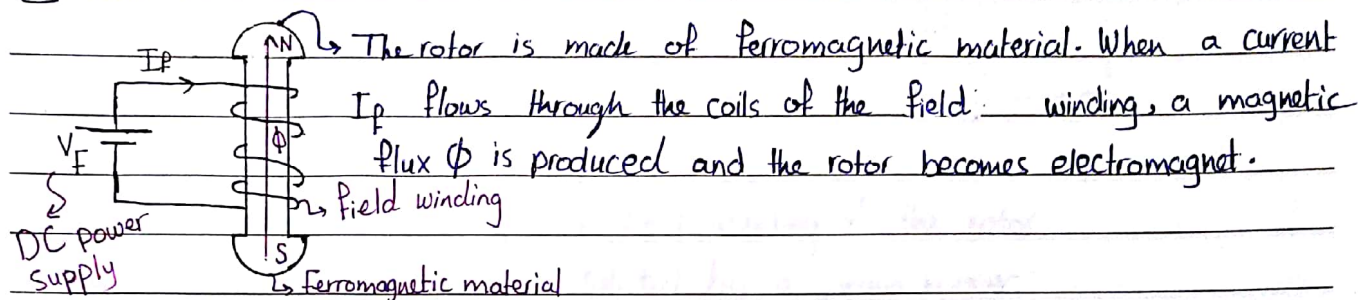 N
The rotor is made of ferromagnetic material. When a current
If
If flows through the coils of the field winding, a magnetic
VF
Φ
flux Φ is produced and the rotor becomes electromagnet.
field winding
DC power
supply
S
ferromagnetic material